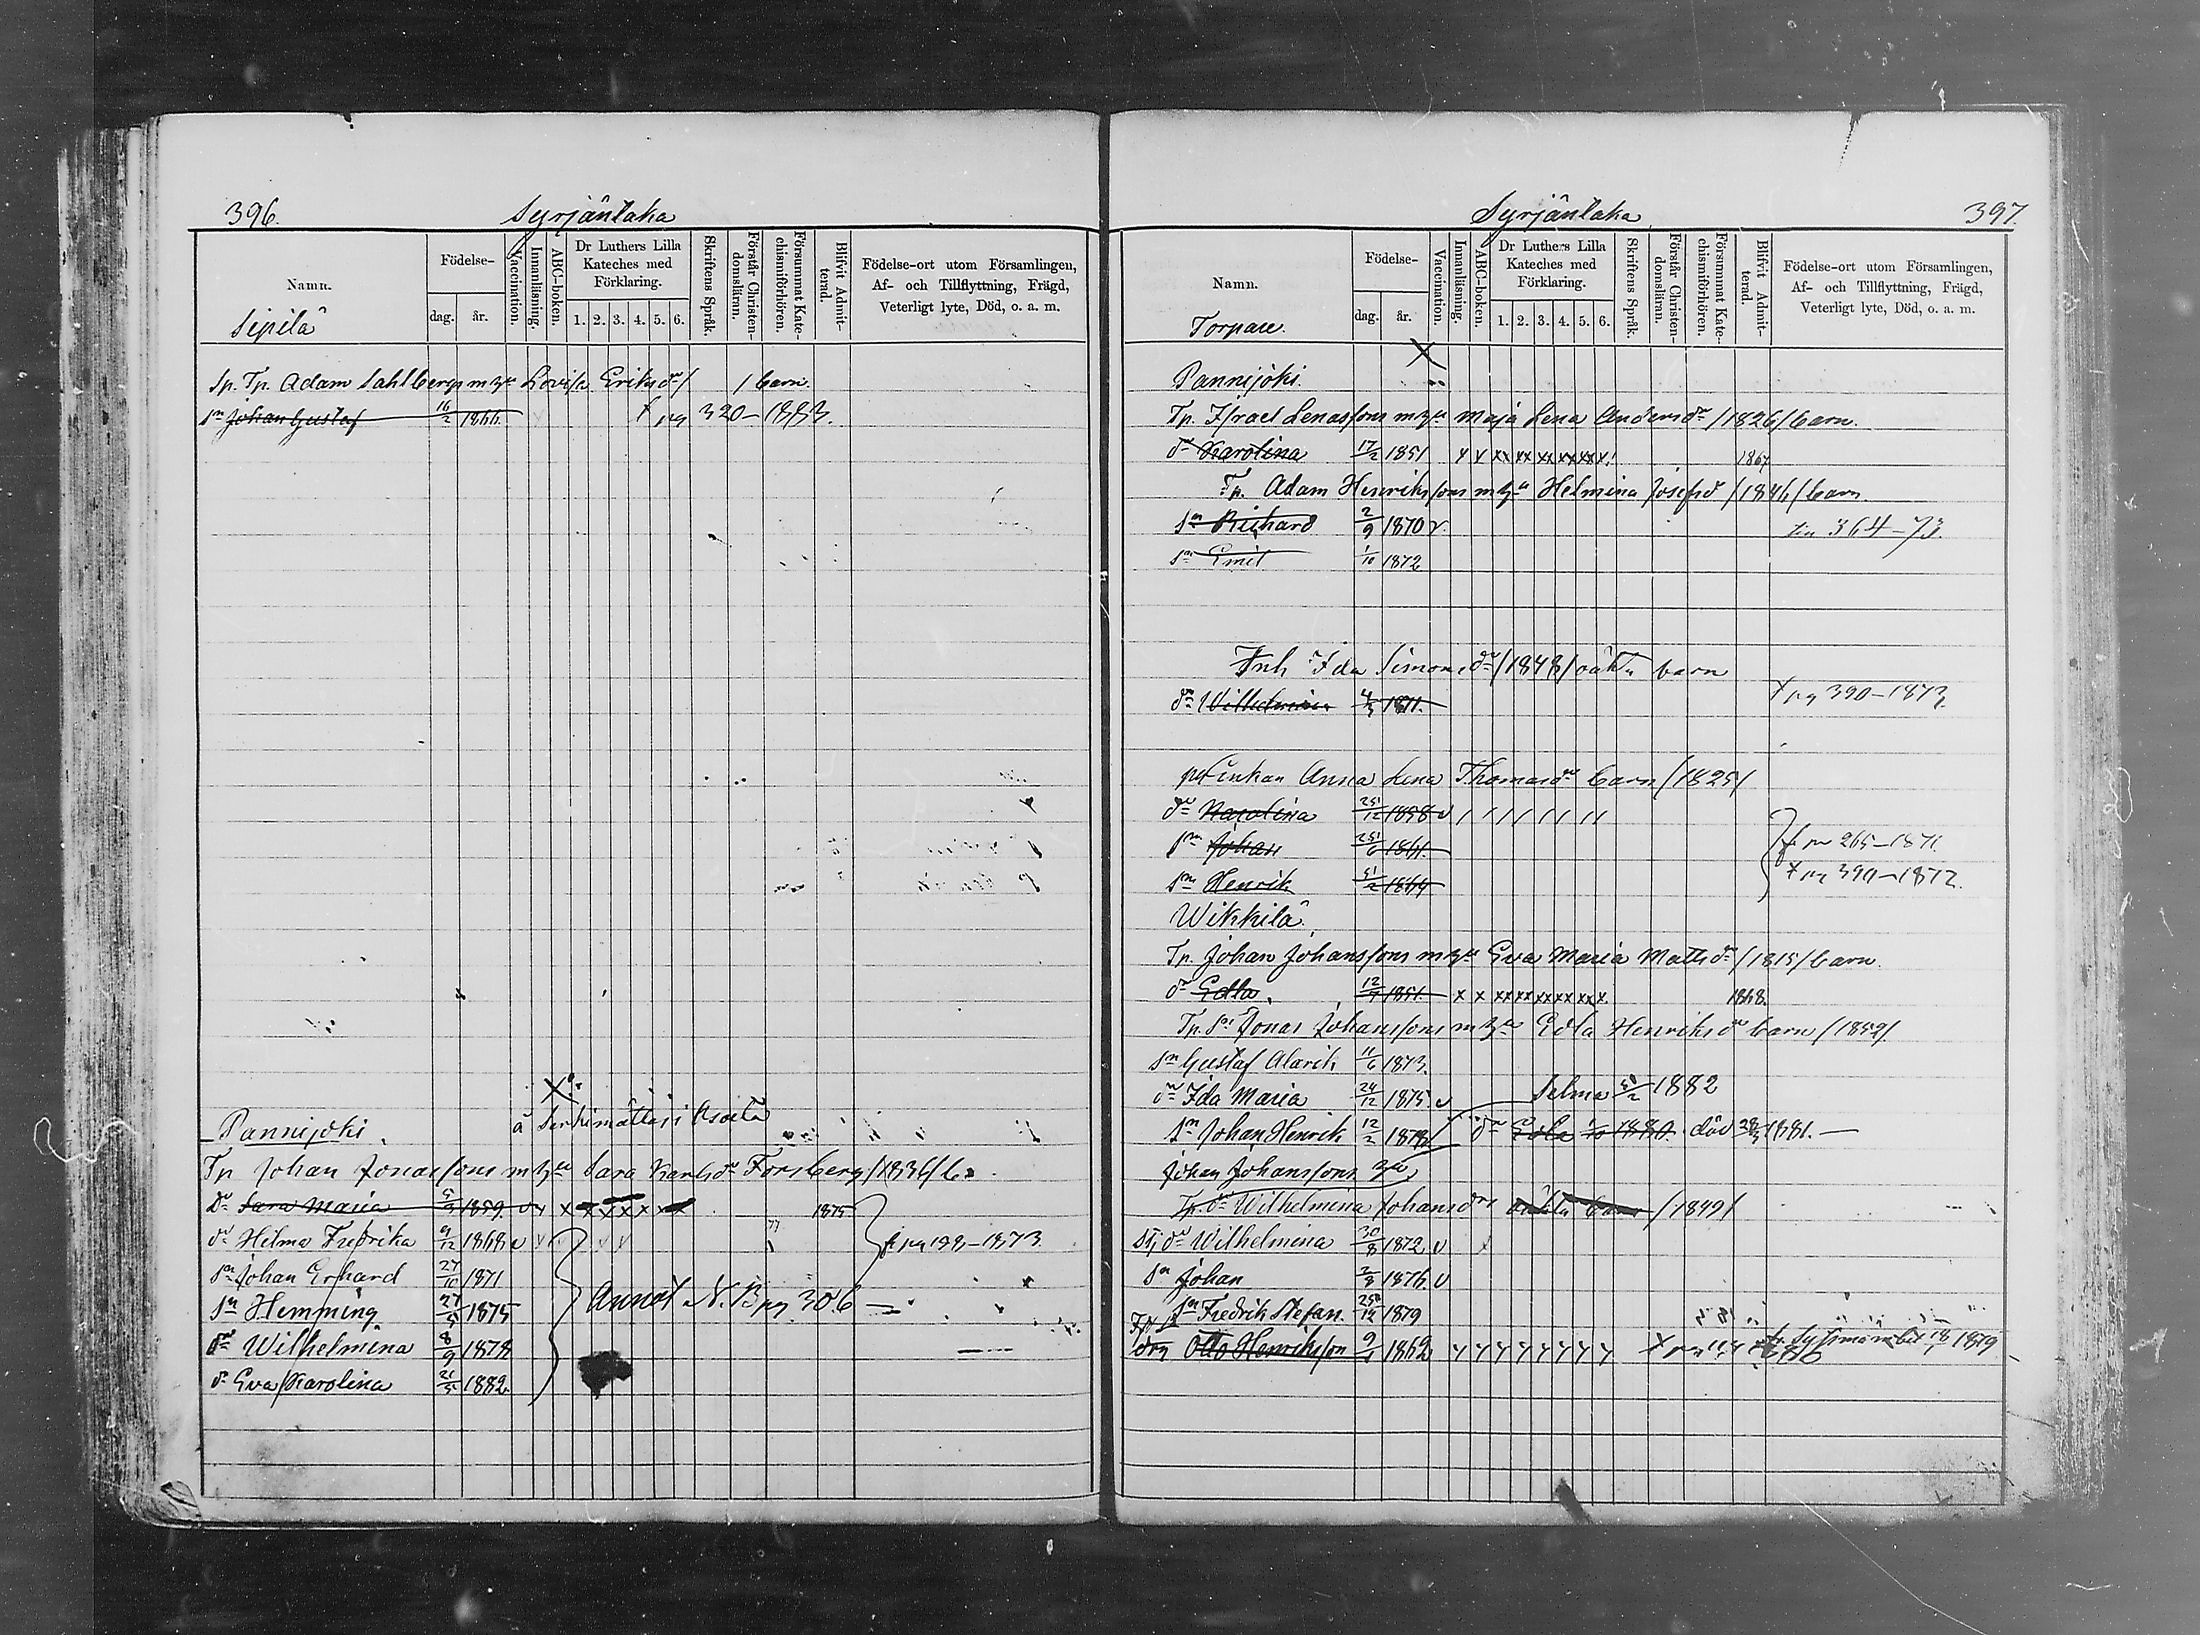 396.
Syrjäntaka
Namn.
Födelse-
dag.
år.
Vaccination.
Innanläsning.
ABC-boken.
Dr Luthers Lilla
Kateches med
Förklaring.
1. 2. 3. 4. 5. 6.
Skriftens Språk.
Förstår Christen-
domsläran.
Försummat Kate-
chismiförhören.
Blifvit Admit-
terad.
Födelse-ort utom Församlingen,
Af- och Tillflyttning, Frägd,
Veterligt lyte, Död, o. a. m.
Sipilä
Sp. Tp. Adam Sahlbergs m h:u Lovisa Eriksdr / 1 barn.
Sn Johan Gustaf 16/2 1866. x pg 320-1883.
Pannijoki
Tp Johan Jonassons m h:u Sara Karlsdr Forsberg /1836/ b:
dr Sara Maria 5/3 1859 1875
dr Helma Fredrika 9/12 1868 1873
sn Johan Erhard 27/10 1871
sn Hemming 27/5 1875 Annot N.B pg. 306
dr Wilhelmina 8/9 1878
dr Eva Karolina 21/5 1882
Syrjäntaka
397.
Namn.
Födelse-
dag.
år.
Vaccination.
Innanläsning.
ABC-boken.
Dr Luthers Lilla
Kateches med
Förklaring.
1. 2. 3. 4. 5. 6.
Skriftens Språk.
Förstår Christen-
domsläran.
Försummat Kate-
chismiförhören.
Blifvit Admit-
terad.
Födelse-ort utom Församlingen,
Af- och Tillflyttning, Frägd,
Veterligt lyte, Död, o. a. m.
Torpare.
Pannijoki
Tp. Israel Lenassons m h:u Maja Lena Andersdr /1826/ barn.
dr Karolina 17/2 1851 1867
Tp. Adam Henrikssons m h:u Helmina Josefsd /1846/ barn
sn Richard 2/9 1870 v. 364-73.
sn Emil 1/10 1872
Inh Ida Simonsdr /1848/ oäkta barn
dr Wilhelmina 4/3 1871. x pg 390-1873.
Enkan Anna Lena Thomasdr barn /1825/
dr Karolina 25/12 1858 v
sn Johan 25/6 1861. 265-1871
sn Henrik 5/2 1864 x pg 390-1872.
Wikkilä
Tp. Johan Johanssons m h:u Eva Maria Mattsdr /1815/ barn.
dr Edla. 12/7 1851. 1868.
Tp. sn Jonas Johanssons m h:u Edla Henriksdr barn /1852/
sn Gustaf Alarik 11/6 1873.
dr Ida Maria 24/12 1875. v Selma 1882
sn Johan Henrik 12/2 1878 dr Edla 1880. död 1881.
Johan Johanssons
Tp. dr Wilhelmina Johansdrs oäkta barn /1849/
dr Wilhelmina 30/8 1872 v
sn Johan 2/8 1876 v
sn Fredrik Stefan. 1879
drg Otto Henriksson 9/1 1862 1879